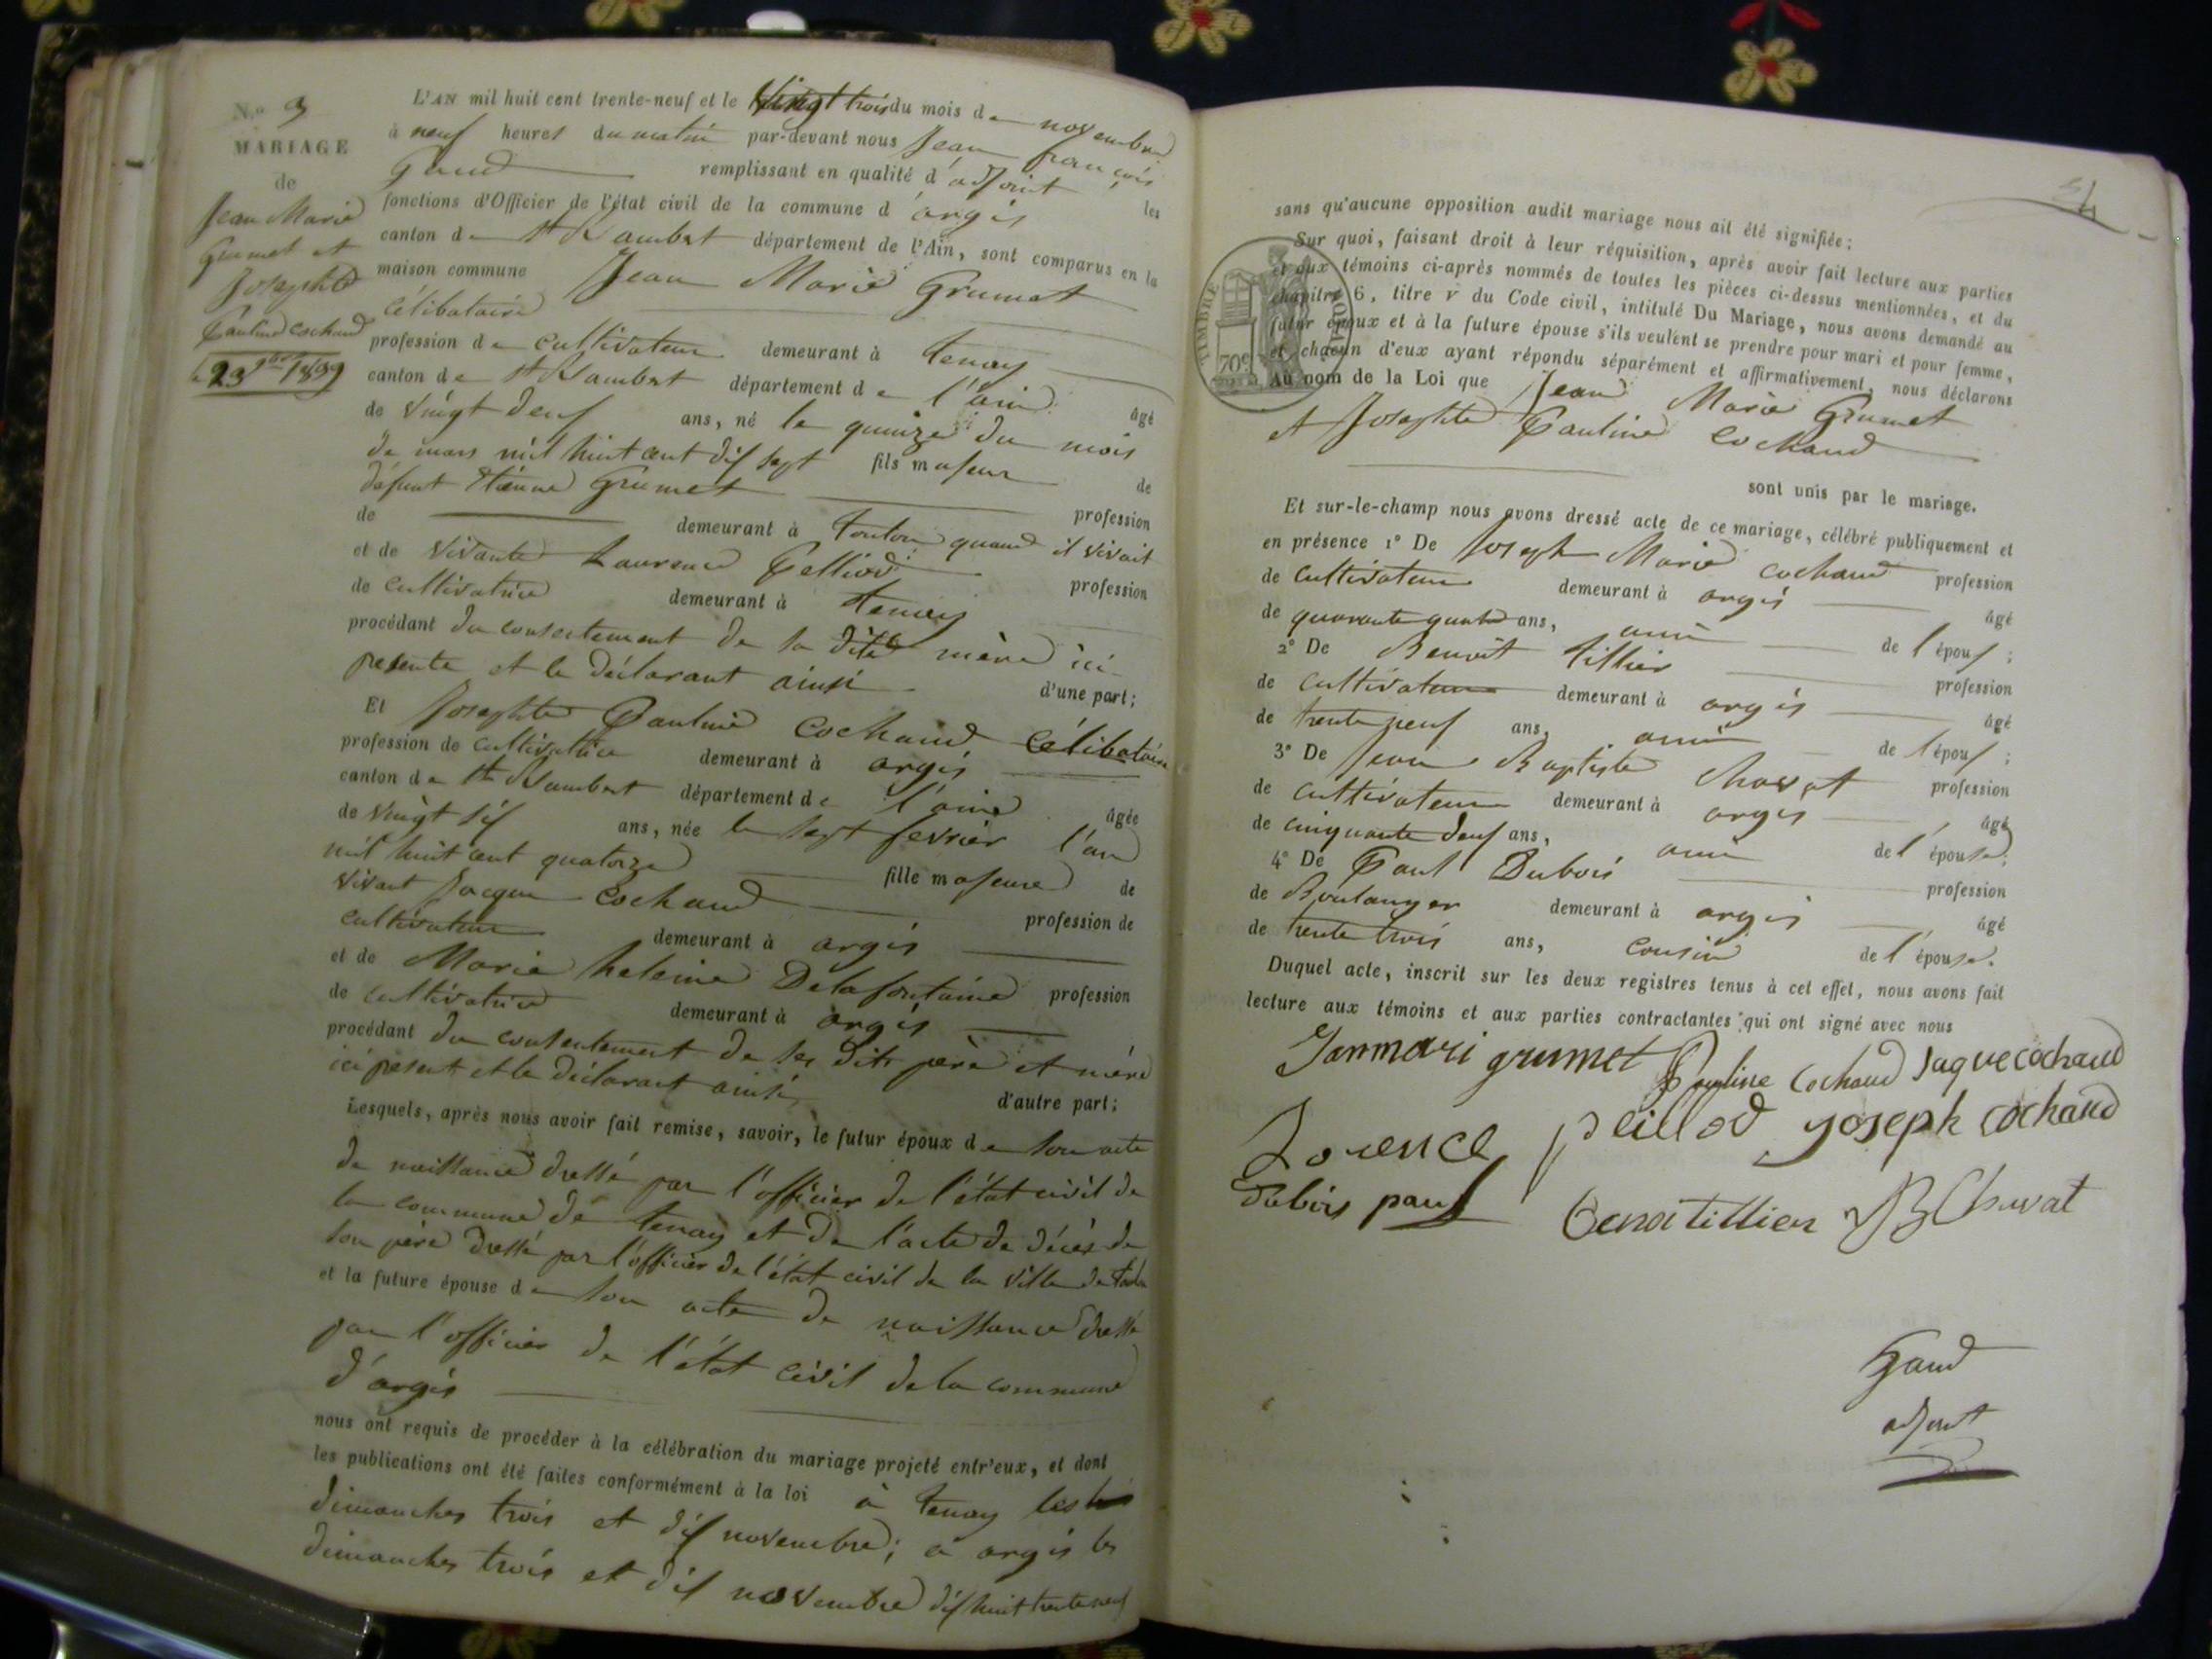 N.º 9
MARIAGE
de
Jean Marie
Grumet et
Josephte
Pauline Cochand
23 9bre 1839
L'AN mil huit cent trente-neuf et le vingt trois du mois de novembre
à neuf heures du matin par-devant nous Jean françois
Gaud remplissant en qualité d'adjoint les
fonctions d'Officier de l'état civil de la commune d'argis
canton de St Rambert département de l'Ain, sont comparus en la
maison commune Jean Marie Grumet
célibataire
profession de cultivateur demeurant à tenay
canton de St Rambert département de l'ain âgé
de vingt deux ans, né le quinze du mois
de mars mil huit cent dix sept fils majeur de
défunt étienne Grumet profession
de demeurant à toulon quand il vivait
et de vivante Laurence Pelliod profession
de cultivatrice demeurant à tenay
procédant du consentement de sa dite mère ici
presente et le déclarant ainsi d'une part;
Et Josephte Pauline Cochand célibataire
profession de cultivatrice demeurant à argis
canton de St Rambert département de l'ain âgée
de vingt six ans, née le sept fevrier l'an
mil huit cent quatorze fille majeure de
vivant Jacque Cochand profession de
cultivateur demeurant à argis
et de Marie heleine Delafontaine profession
de cultivatrice demeurant à argis
procédant du consentement de ses dits père et mère
ici present et le déclarant ainsi d'autre part;
Lesquels, après nous avoir fait remise, savoir, le futur époux de son acte
de naissance dressé par l'officier de l'état civil de
la commune de tenay et de l'acte de décès de
son père dressé par l'officier de l'état civil de la ville de toulon
et la future épouse de son acte de naissance dressé
par l'officier de l'état civil de la commune
d'argis
nous ont requis de procéder à la célébration du mariage projeté entr'eux, et dont
les publications ont été faites conformément à la loi à tenay les
dimanches trois et dix novembre; à argis les
dimanches trois et dix novembre dix huit trente neuf
sans qu'aucune opposition audit mariage nous ait été signifiée;
Sur quoi, faisant droit à leur réquisition, après avoir fait lecture aux parties
et aux témoins ci-après nommés de toutes les pièces ci-dessus mentionnées, et du
chapitre 6, titre v du Code civil, intitulé Du Mariage, nous avons demandé au
futur époux et à la future épouse s'ils veulent se prendre pour mari et pour femme,
et chacun d'eux ayant répondu séparément et affirmativement, nous déclarons
Au nom de la Loi que Jean Marie Grumet
et Josephte Pauline Cochand
sont unis par le mariage.
TIMBRE ROYAL
70c
Et sur-le-champ nous avons dressé acte de ce mariage, célébré publiquement et
en présence 1º De Joseph Marie Cochand profession
de cultivateur demeurant à argis âgé
de quarante quatre ans, ami de l'époux;
2º De Benoit tillier profession
de cultivateur demeurant à argis âgé
de trente neuf ans, ami de l'époux;
3º De Jean Baptiste Chavat profession
de cultivateur demeurant à argis âgé
de cinquante deux ans, ami de l'épouse;
4º De Paul Dubois profession
de Boulanger demeurant à argis âgé
de trente trois ans, cousin de l'épouse.
Duquel acte, inscrit sur les deux registres tenus à cet effet, nous avons fait
lecture aux témoins et aux parties contractantes qui ont signé avec nous
Janmari grumet Pauline Cochand Jaque cochand
Lorence peillod joseph cochand
Dubois paul Benoi tillier JB Chavat
Gaud
adjoint